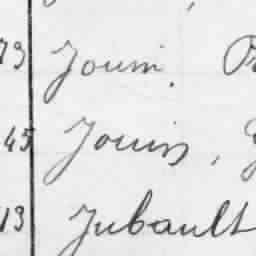 73 Jouin.
45 Jouin,
13 Jubault